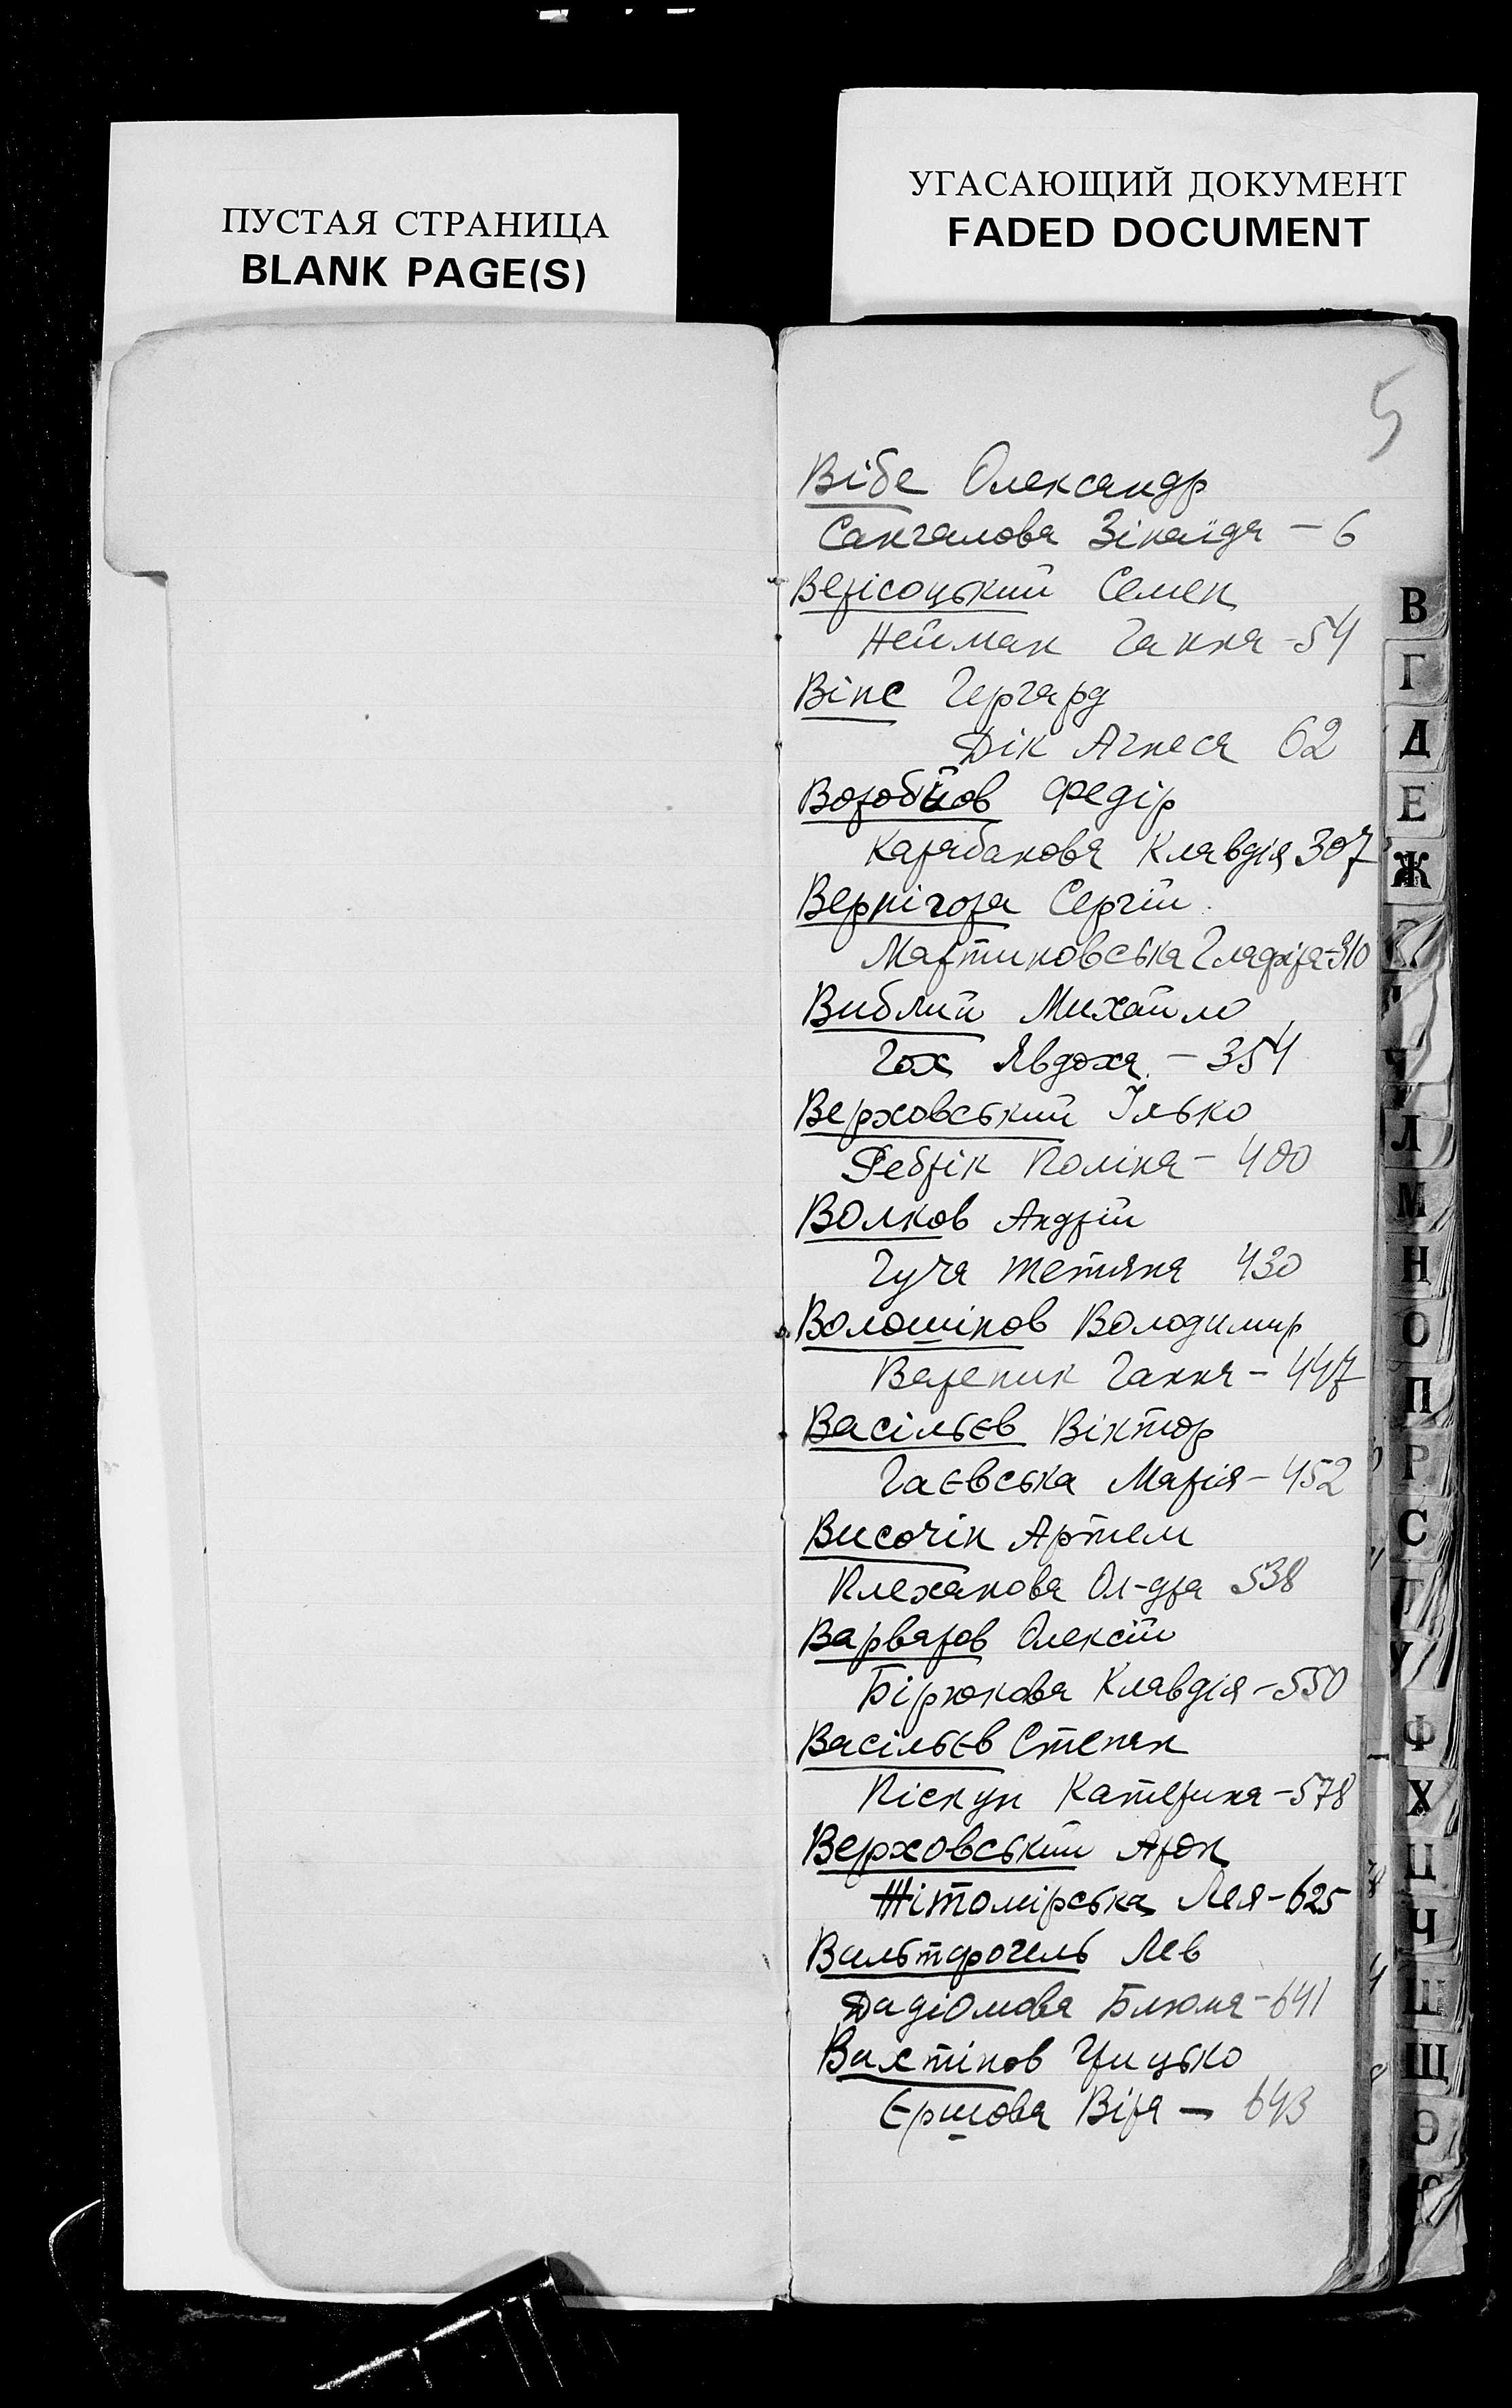 ПУСТАЯ СТРАНИЦА
BLANK PAGE(S)
УГАСАЮЩИЙ ДОКУМЕНТ
FADED DOCUMENT
5
Вібе Олександр
Сангалова Зінаїда - 6
Верісоцький Семен
Нейман Ганна - 54
Вінс Гергард
Дік Агнеса 62
Воробйов Федір
Карабанова Клавдія 307
Вернігора Сергій
Мартиновська Глафіра - 310
Виблий Михайло
Гох Явдоха - 354
Верховський Ілько
Ребрік Поліна - 400
Волков Андрій
Гуча Тетяна 430
Волошінов Володимир
Вареник Ганна - 447
Васільєв Віктор
Гаєвська Марія - 452
Височін Артем
Плеханова Ол-дра 538
Варваров Олексій
Бірюкова Клавдія - 550
Васільєв Степан
Піскун Катерина - 578
Верховський Арон
Жітомірська Лея - 625
Вальтфогель Лев
Дадіомова Блюма - 641
Вахтінов Грицько
Єршова Віра - 643
В
Г
Д
Е
Ж
Л
М
Н
О
П
Р
С
Т
У
Ф
Х
Ц
Ч
Ш
Щ
Э